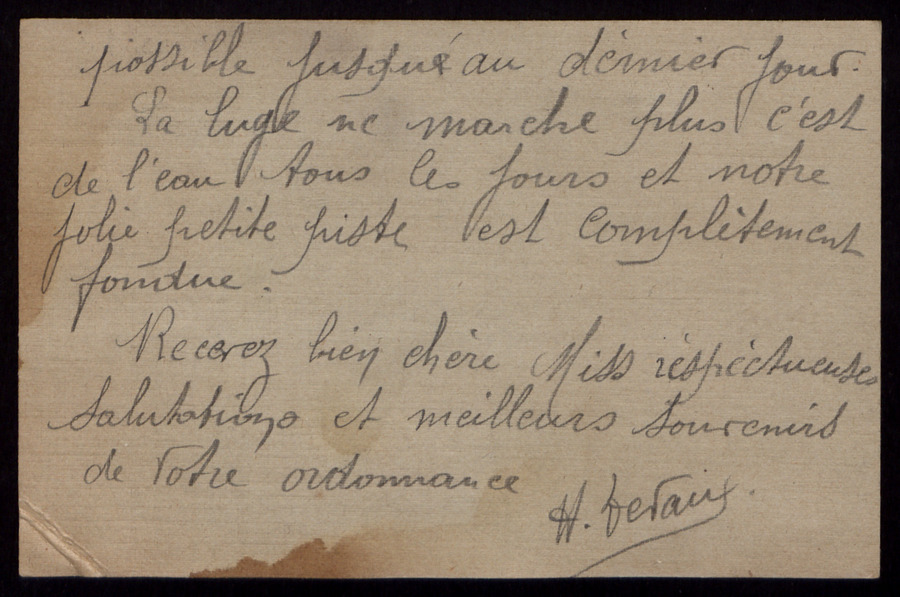 possible jusqu'au dérnier jour.
La luge ne marche plus c'est
de l'eau tous les jours et notre
jolie petite piste est complètement
fondue.
Recevez bien chère Miss réspéctueuses
salutations et meilleurs souvenirs
de votre ordonnance
H. Devaux.